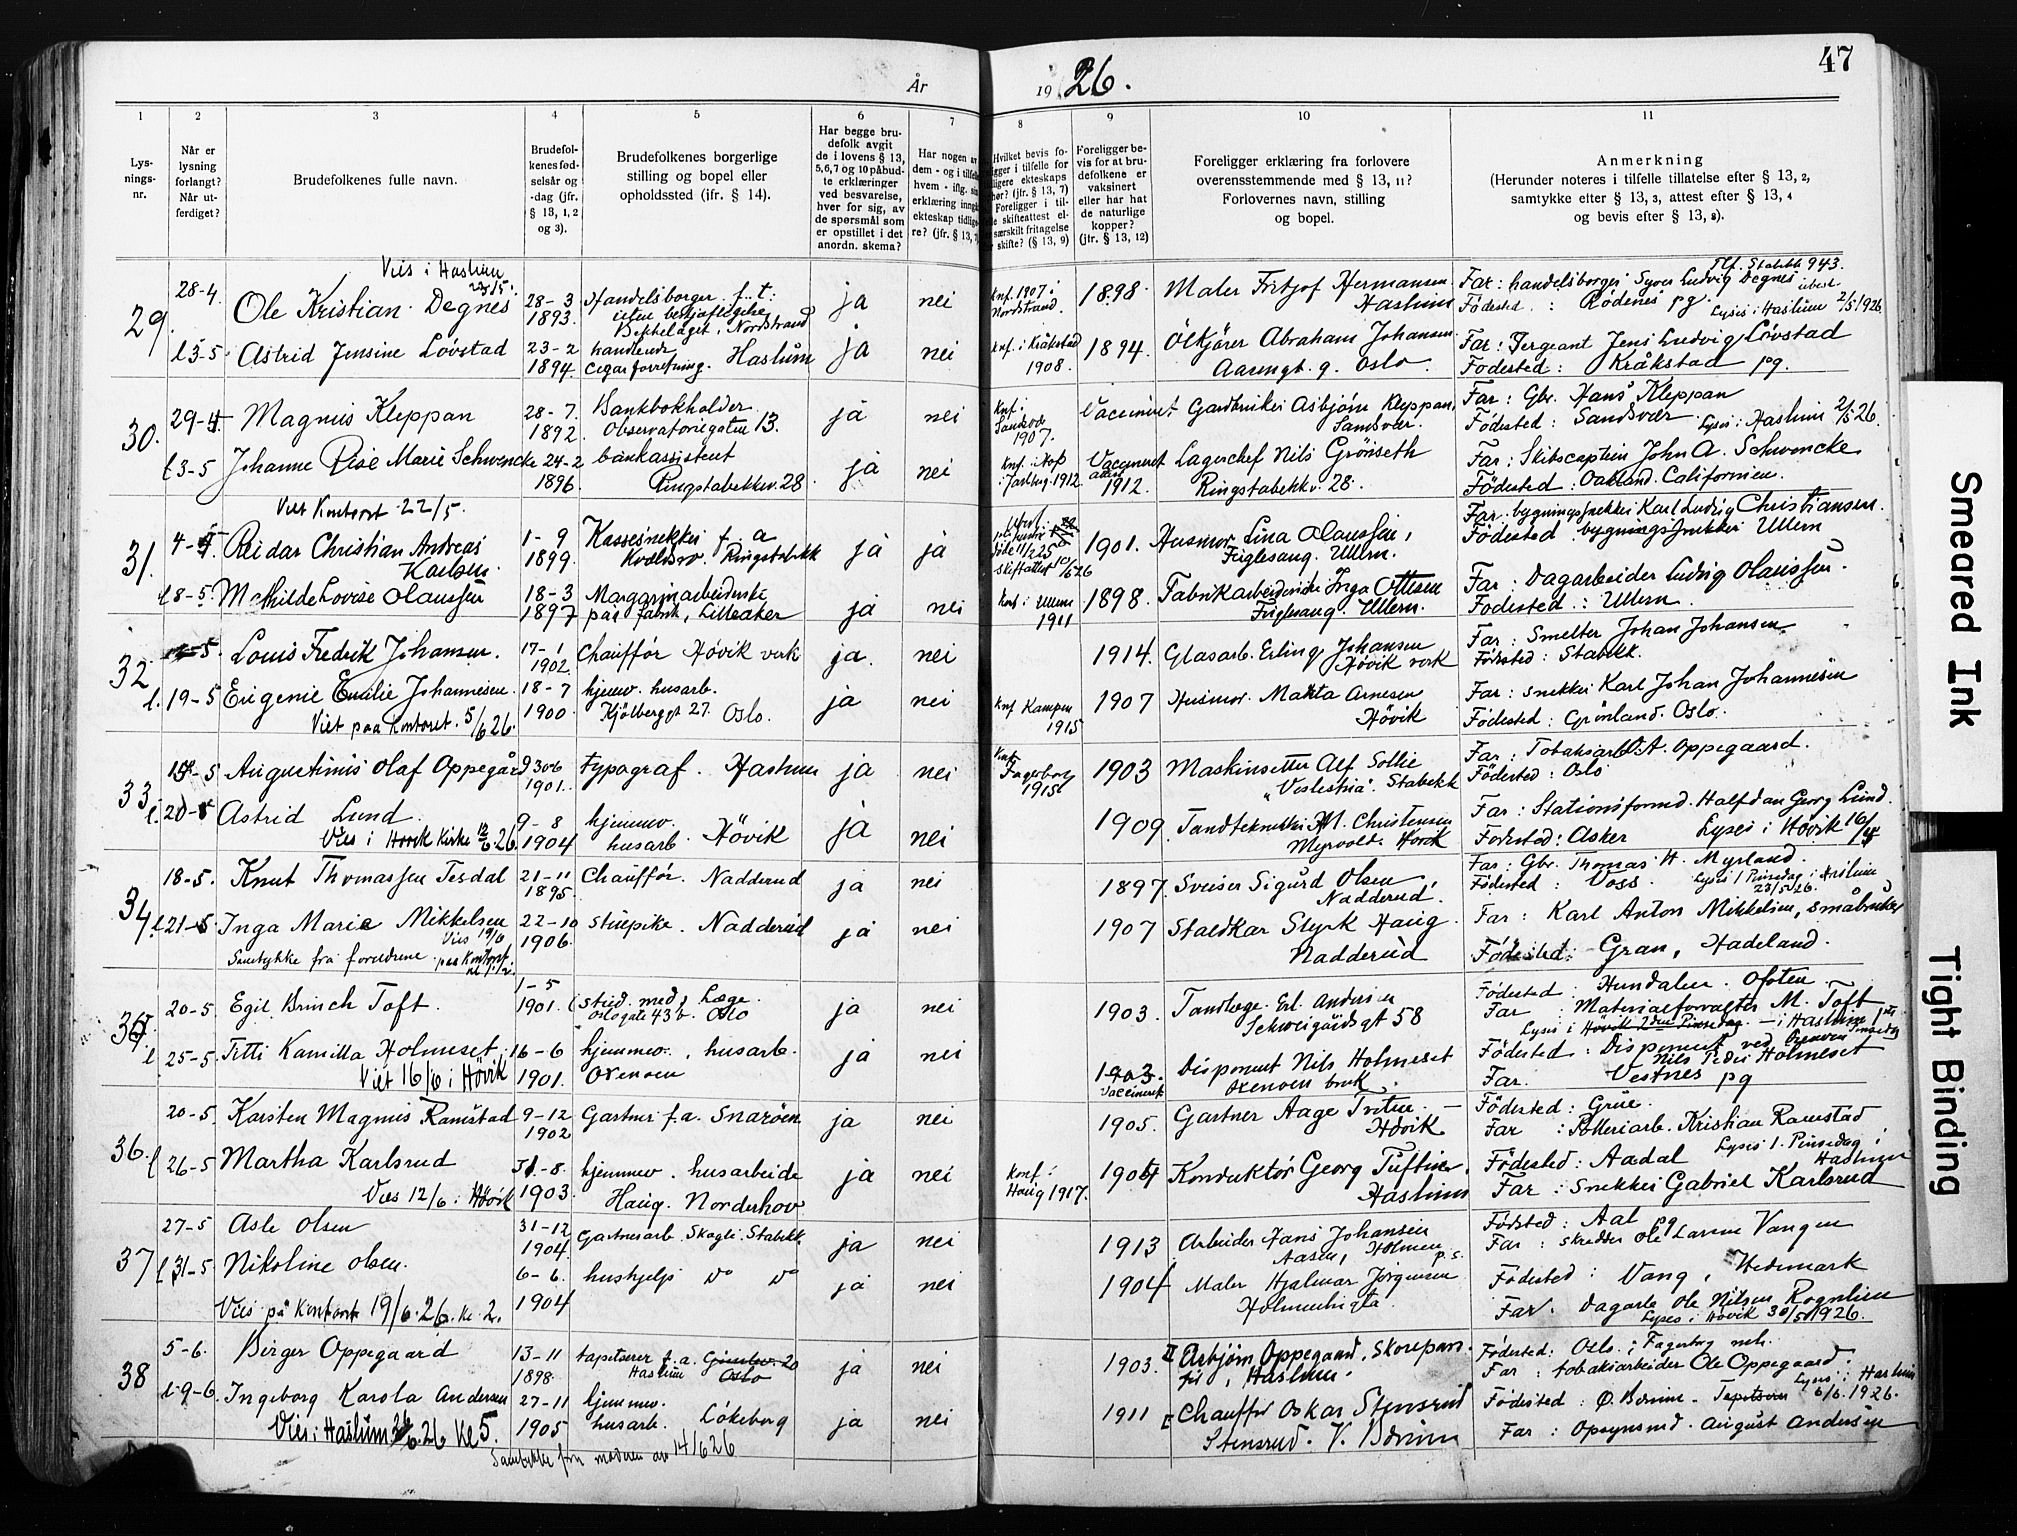 47
År 1926.
1 2 3 4 5 6 7 8 9 10 11
Lys-
nings-
nr.
Når er
lysning
forlangt?
Når ut-
ferdiget?
Brudefolkenes fulle navn.
Brudefol-
kenes fød-
selsår og
-dag (jfr.
§ 13, 1, 2
og 3).
Brudefolkenes borgerlige
stilling og bopel eller
opholdssted (ifr. § 14).
Har begge bru-
defolk avgit
de i lovens § 13,
5,6,7 og 10 påbud-
te erklæringer
ved besvarelse,
hver for sig, av
de spørsmål som
er opstillet i det
anordn. skema?
Har nogen av
dem - og i tilfelle
hvem - iflg. sin
erklæring inngått
ekteskap tidlige-
re? (jfr. § 13, 7)
Hvilket bevis fo-
ligger i tilfelle for
ligere ekteskaps
hør? (jfr. § 13, 7)
Foreligger i til-
le skifteattest el-
særskilt fritagelse
skifte? (§ 13, 9)
Foreligger be-
vis for at bru-
defolkene er
vaksinert
eller har hat
de naturlige
kopper?
(jfr. § 13, 12)
Foreligger erklæring fra forlovere
overensstemmende med § 13, 11?
Forlovernes navn, stilling
og bopel.
Anmerkning
(Herunder noteres i tilfelle tillatelse efter § 13, 2,
samtykke efter § 13, 3, attest efter § 13, 4
og bevis efter § 13, 8).
Vies i Haslum
29. 28-4. Ole Kristian Degnes 28-3 1893. Handelsborger f. t. uten beskjeftigelse Bekkelaget, Nordstrand ja nei Knf. 1907 i Nordstrand. 1898. Maler Fritjof Hermansen Haslum
Tlf. Stabekk 943.
Far: handelsborger Syver Ludvig Degnes
Fødested: Rødenes pg. Lyses i Haslum 2/5 1926.
l 3-5. Astrid Jensine Løvstad 23-2 1894. handlende cigarforretning. Haslum ja nei Knf. i Kråkstad 1908. 1894. Ølkjører Abraham Johansen Oslo. Far: Sergeant Jens Ludvig Løvstad
Fødested: Kråkstad pg.
30. 29-4. Magnus Kleppan 28-7. 1892. Bankbokholder Observatoriegaten 13. ja nei Knf. i Sandsvær 1907. Vaccinert Gardbruker Asbjørn Kleppan, Sandsvær. Far: Gbr. Hans Kleppan
Fødested: Sandsvær. Lyses i Haslum 2/5 26.
l 3-5 Johanne Rise Marie Schwencke 24-2 1896. bankassistent Ringstabekkv. 28. ja nei Vaccinert 1912. Lagerchef Nils Grønseth Ringstabekkv. 28. Far: Skibscaptein John A. Schwencke
Fødested: Oakland. Californien.
Viet Kontoret 22/5.
31. 4-5. Reidar Christian Andreas Karlsen. 1-9 1899. Kassesnekker f. a Ringstabekk ja ja 1901. Husmor Lina Olaussen, Fuglesang. Ullern. Far: bygningssnekker Karl Ludvig Christiansen.
Fødested bygningssnekker Ullern
l 8-5. Mathilde Lovise Olaussen 18-3 1897 Margarinarbeiderske paa fabrik, Lilleaker ja nei Knf. i Ullern 1911 1898. Fabrikarbeiderske Inga Ottesen Fuglesang. Ullern. Far: Dagarbeider Ludvig Olaussen.
Fødested: Ullern.
32 5. Louis Fredrik Johansen. 17-1 1902. Chauffør Høvik verk ja. nei 1914. Glasarb. Erling Johansen Høvik verk Far: Smelter Johan Johansen.
Fødested: Stabekk.
l. 19-5 Eugenie Emilie Johannesen. 18-7 1900. hjemv. husarb. Kjølberggt 27. Oslo. ja nei Knf Kampen 1915 1907 Husmor. Marta Arnesen Høvik Far: Snekker Karl Johan Johannesen
Fødested: Grønland. Oslo.
Viet paa Kontoret. 5/6 26.
33 5 Augustinus Olaf Oppegård 30-6 1901. typograf. Haslum ja nei Fagerborg 1915 1903 Maskinsetter Alf Sollie "Veslestua". Stabekk Far: Tobaksarb. O. A. Oppegaard.
Fødested: Oslo
l. 20-5 Astrid Lund. 9-8 1904 hjemmev. husarb. Høvik ja nei 1909. Tandtekniker M. Christensen Myrvold. Høvik Far: Stationsformd. Halfdan Georg Lund.
Fødested: Asker Lyses i Høvik 16/5
Vies i Høvik Kirke 12/6 26
34 18-5. Knut Thomassen Tesdal 21-11 1895. Chauffør. Nadderud ja nei 1897. Sveiser Sigurd Olsen Nadderud. Far: Gbr. Thomas H. Myrland.
Fødested: Voss. Lyses 1 Pinsedag i Haslum 23/5 26.
l. 21-5 Inga Marie Mikkelsen 22-10 1906. stuepike. Nadderud ja nei 1907 Staldkar Styrk Haug. Nadderud Far: Karl Anton Mikkelsen, småbruker
Fødested: Gran, Hadeland.
Samtykke fra foreldrene. Vies 19/6 paa Kontoret
35 20-5. Egil Brinch Toft. 1-5 1901. stud. med. Læge. Oslogate 43 b. Oslo ja nei 1903. Tandlæge. Erl. Andersen Schweigaardsgt 58 Fødested: Hundalen. Ofoten
Far: Materialforvalter M. Toft
Lyses i Høvik 2den Pinsedag. - i Haslum 1ste Pinsedag
l 25-5. Titti Kamilla Holmeset. 16-6 1901. hjemmev., husarb. Oxenøen ja nei 1903. vaccinert Disponent Nils Holmeset Oxenøen bruk Fødested: Disponent ved Oxenøen Nils Peder Holmeset
Far. Vestnes pg
Viet 16/6 i Høvik
36. 20-5. Karsten Magnus Ramstad 9-12 1902 Gartner f.a. Snarøen ja nei 1905. Gartner Aage Tveten - Høvik Fødested: Grue.
Far: Kristian Ramstad
Lyses 1. Pinsedag i Haslum
l 26-5 Martha Karlsrud 31-8. 1903. hjemmev. husarbeide Haug. Norderhov ja nei Konf: Haug 1917. 1904 Konduktør Georg Tuftin. Haslum Fødested: Aadal
Far: Snekker Gabriel Karlsrud
Vies 12/6 i Høvik
37 27-5 Asle Olsen 31-12 1904. Gartnerarb. Skogli. Stabekk ja nei 1913 Arbeider Hans Johansen Aasen, Holmen p.s. Fødested: Aal pg
Far: skredder Ole Larsen Vangen
l 31-5 Nikoline Olsen. 6-6. 1904 hushjelp do do ja nei 1904 Maler Hjalmar Jørgensen Fødested: Vang, Hedemark
Far. dagarb. Ole Nilsen Rognlien
Lyses i Høvik 30/5 1926.
Vies på Kontoret 19/6.26. kl. 2.
38 5-6. Birger Oppegaard 13-11 1898 tapetserer f.a. 20 Haslum Oslo ja nei 1903. Asbjørn Oppegaard. Haslum. Fødested: Oslo. i Fagerborg mh.
Far: tobaksarbeider Ole Oppegaard. Lyses i Haslum 6/6. 1926.
l 9-6. Ingeborg Karola Andersen 27-11 1905 hjemmev. husarb. Løkeberg ja nei 1911 Chauffør Oskar Stensrud Stensrud. V. Bærum Fødested: Ø. Bærum. Tapetserer
Far: Opsynsmd. August Andersen
Vies i Haslum 26/6.26 kl 5.
Samtykke fra moderen av 14/6 26
Smeared Ink
Tight Binding